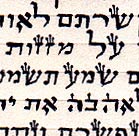 שרתם לאות
על מזזות
ם שמע תשמע
לאהבה את יה